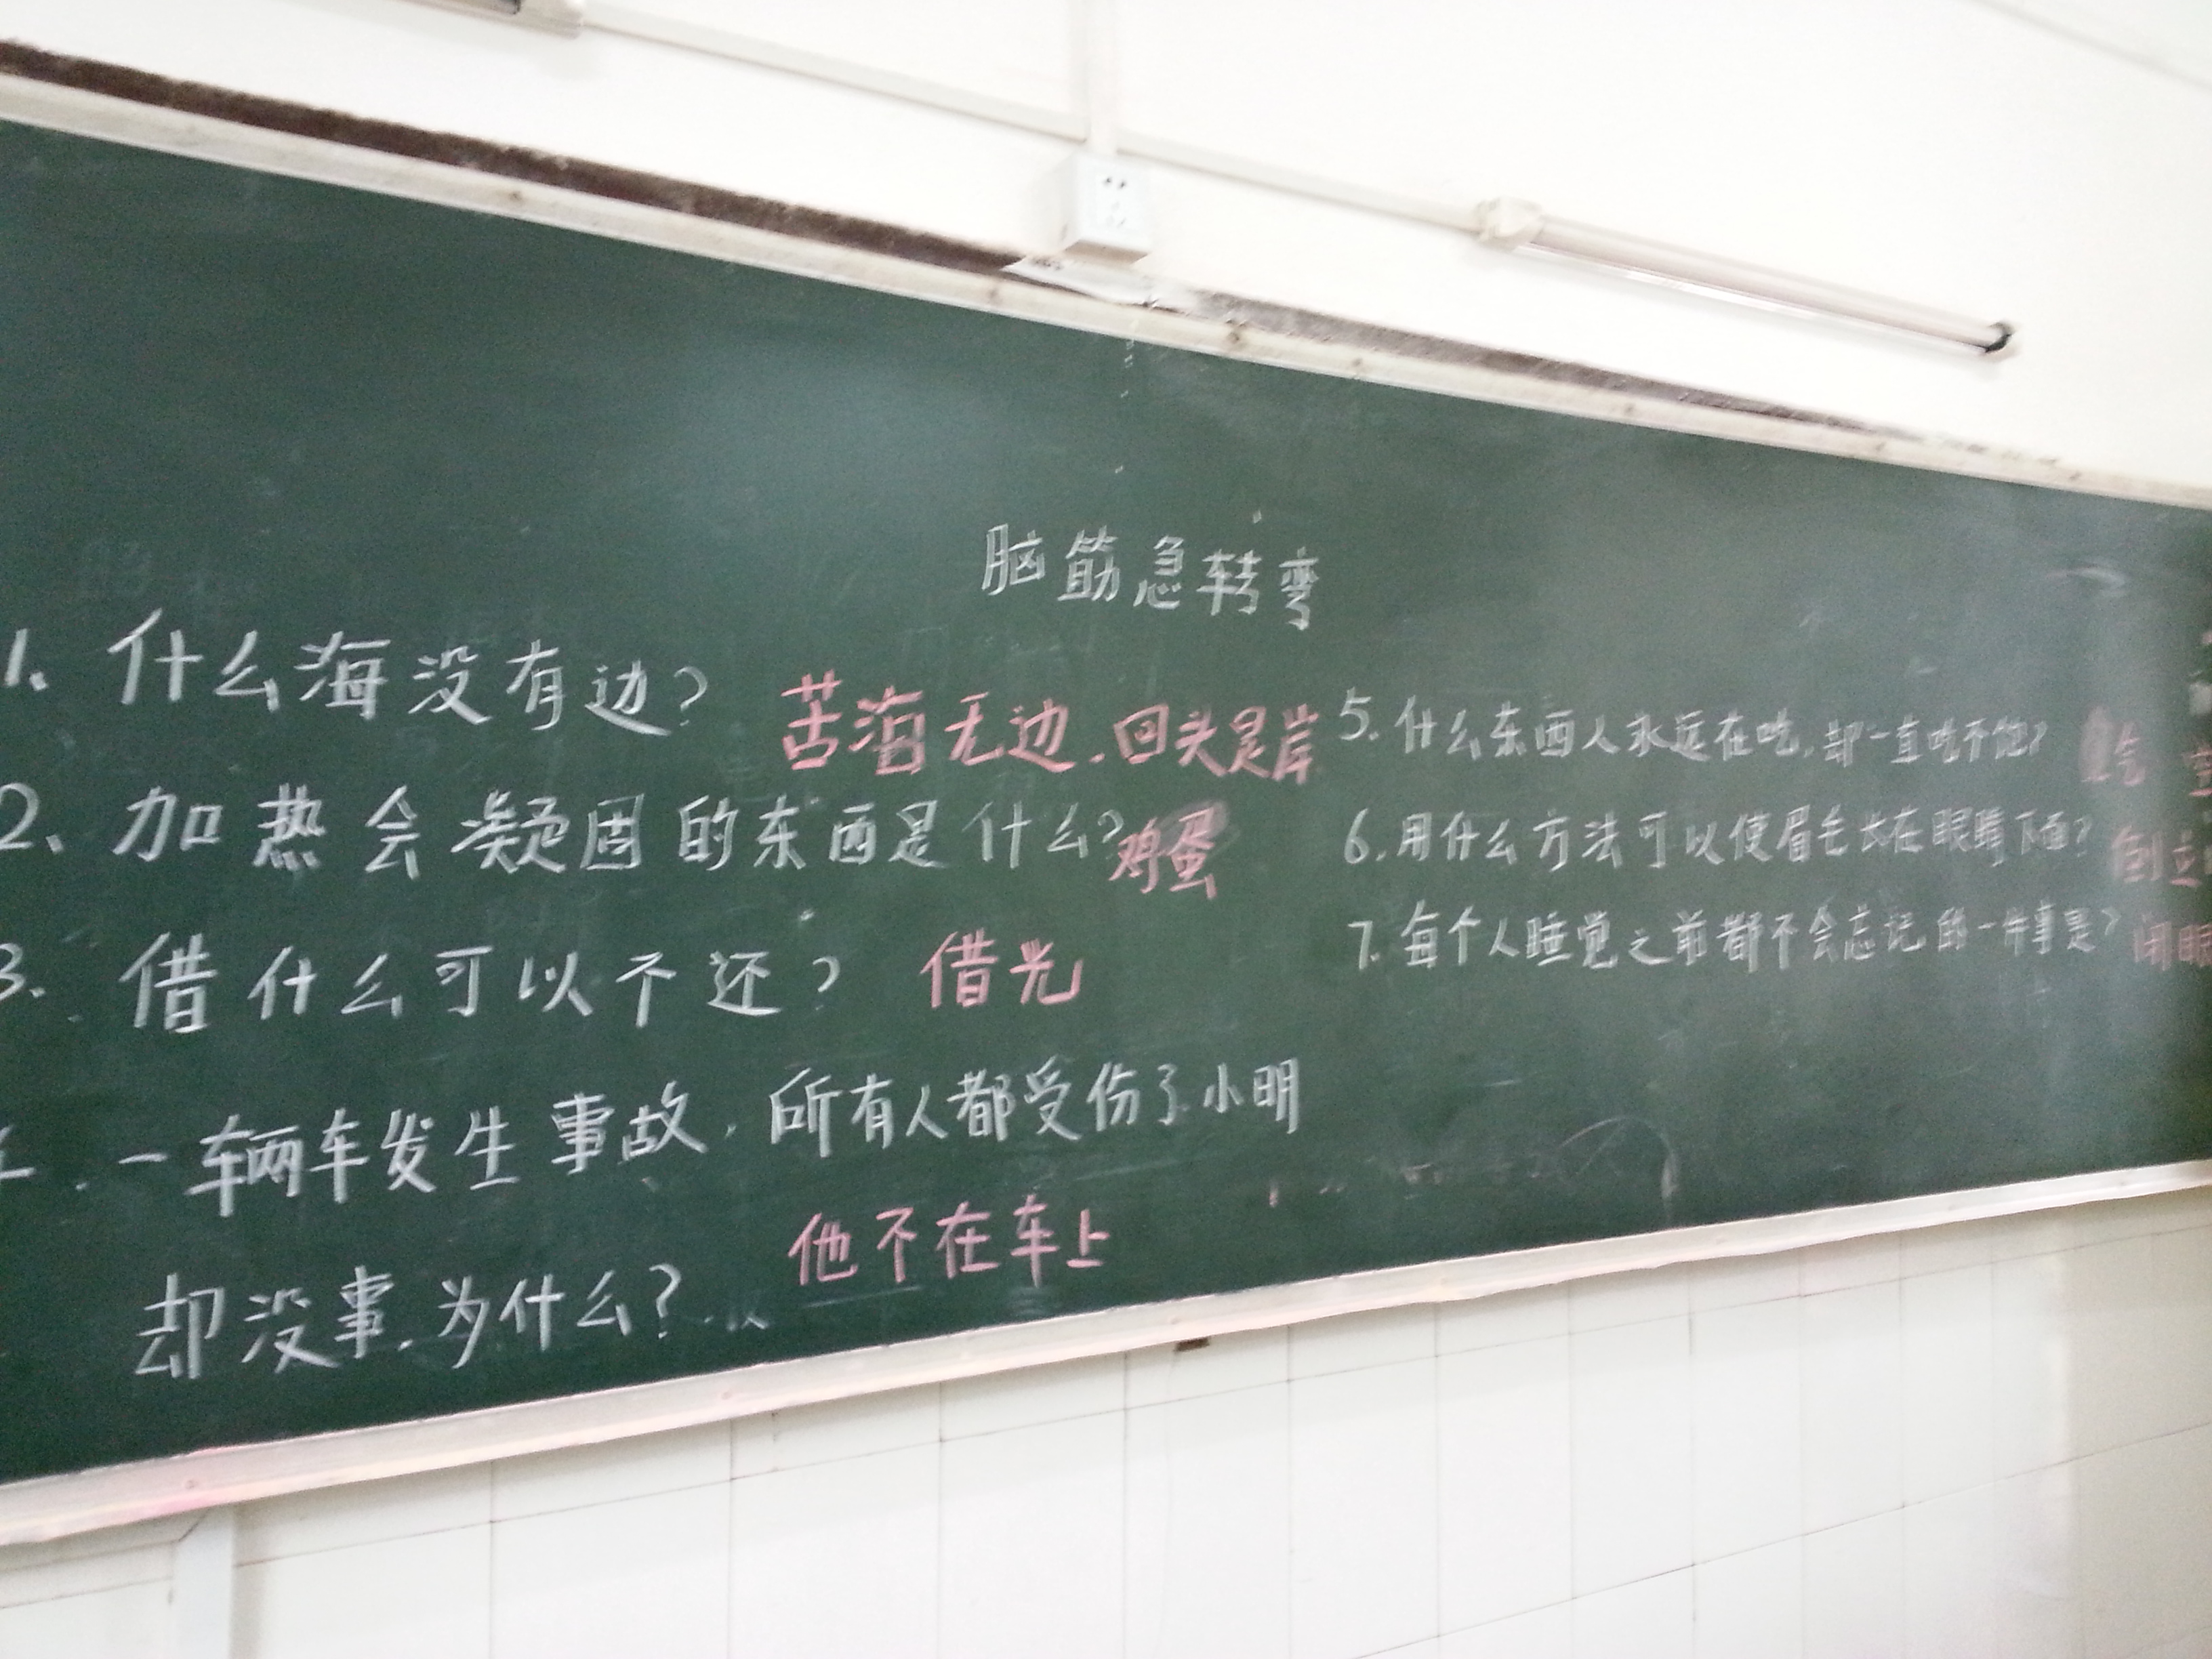 脑筋急转弯
1、什么海没有边？ 苦海无边，回头是岸
2、加热会凝固的东西是什么？ 鸡蛋
3、借什么可以不还？ 借光
一辆车发生事故，所有人都受伤了小明
却没事，为什么？ 他不在车上
5.什么东西人永远在吃，却一直吃不饱？ 气
6.用什么方法可以使眉毛长在眼睛下面？ 倒立
7.每个人睡觉之前都不会忘记的一件事是？ 闭眼